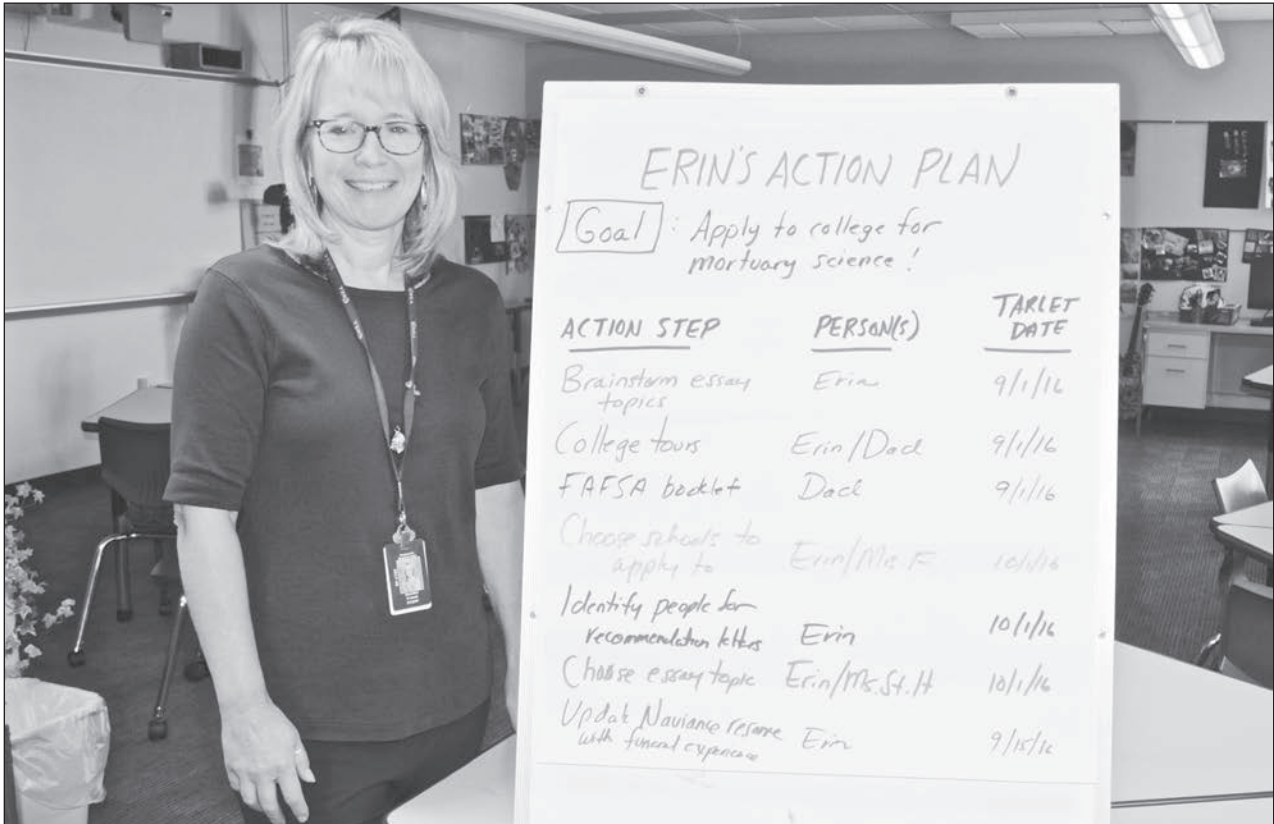 ERIN'S ACTION PLAN
Goal : Apply to college for
mortuary science !
ACTION STEP PERSON(S) TARGET
DATE
Brainstorm essay Erin 9/1/16
topics
College tours Erin/Dad 9/1/16
FAFSA booklet Dad 9/1/16
Choose schools to
apply to Erin/Mrs. F 10/1/16
Identify people for
recommendation letters Erin 10/1/16
Choose essay topic Erin/Ms. St. H 10/1/16
Update Naviance resume
with funeral experience Erin 9/15/16